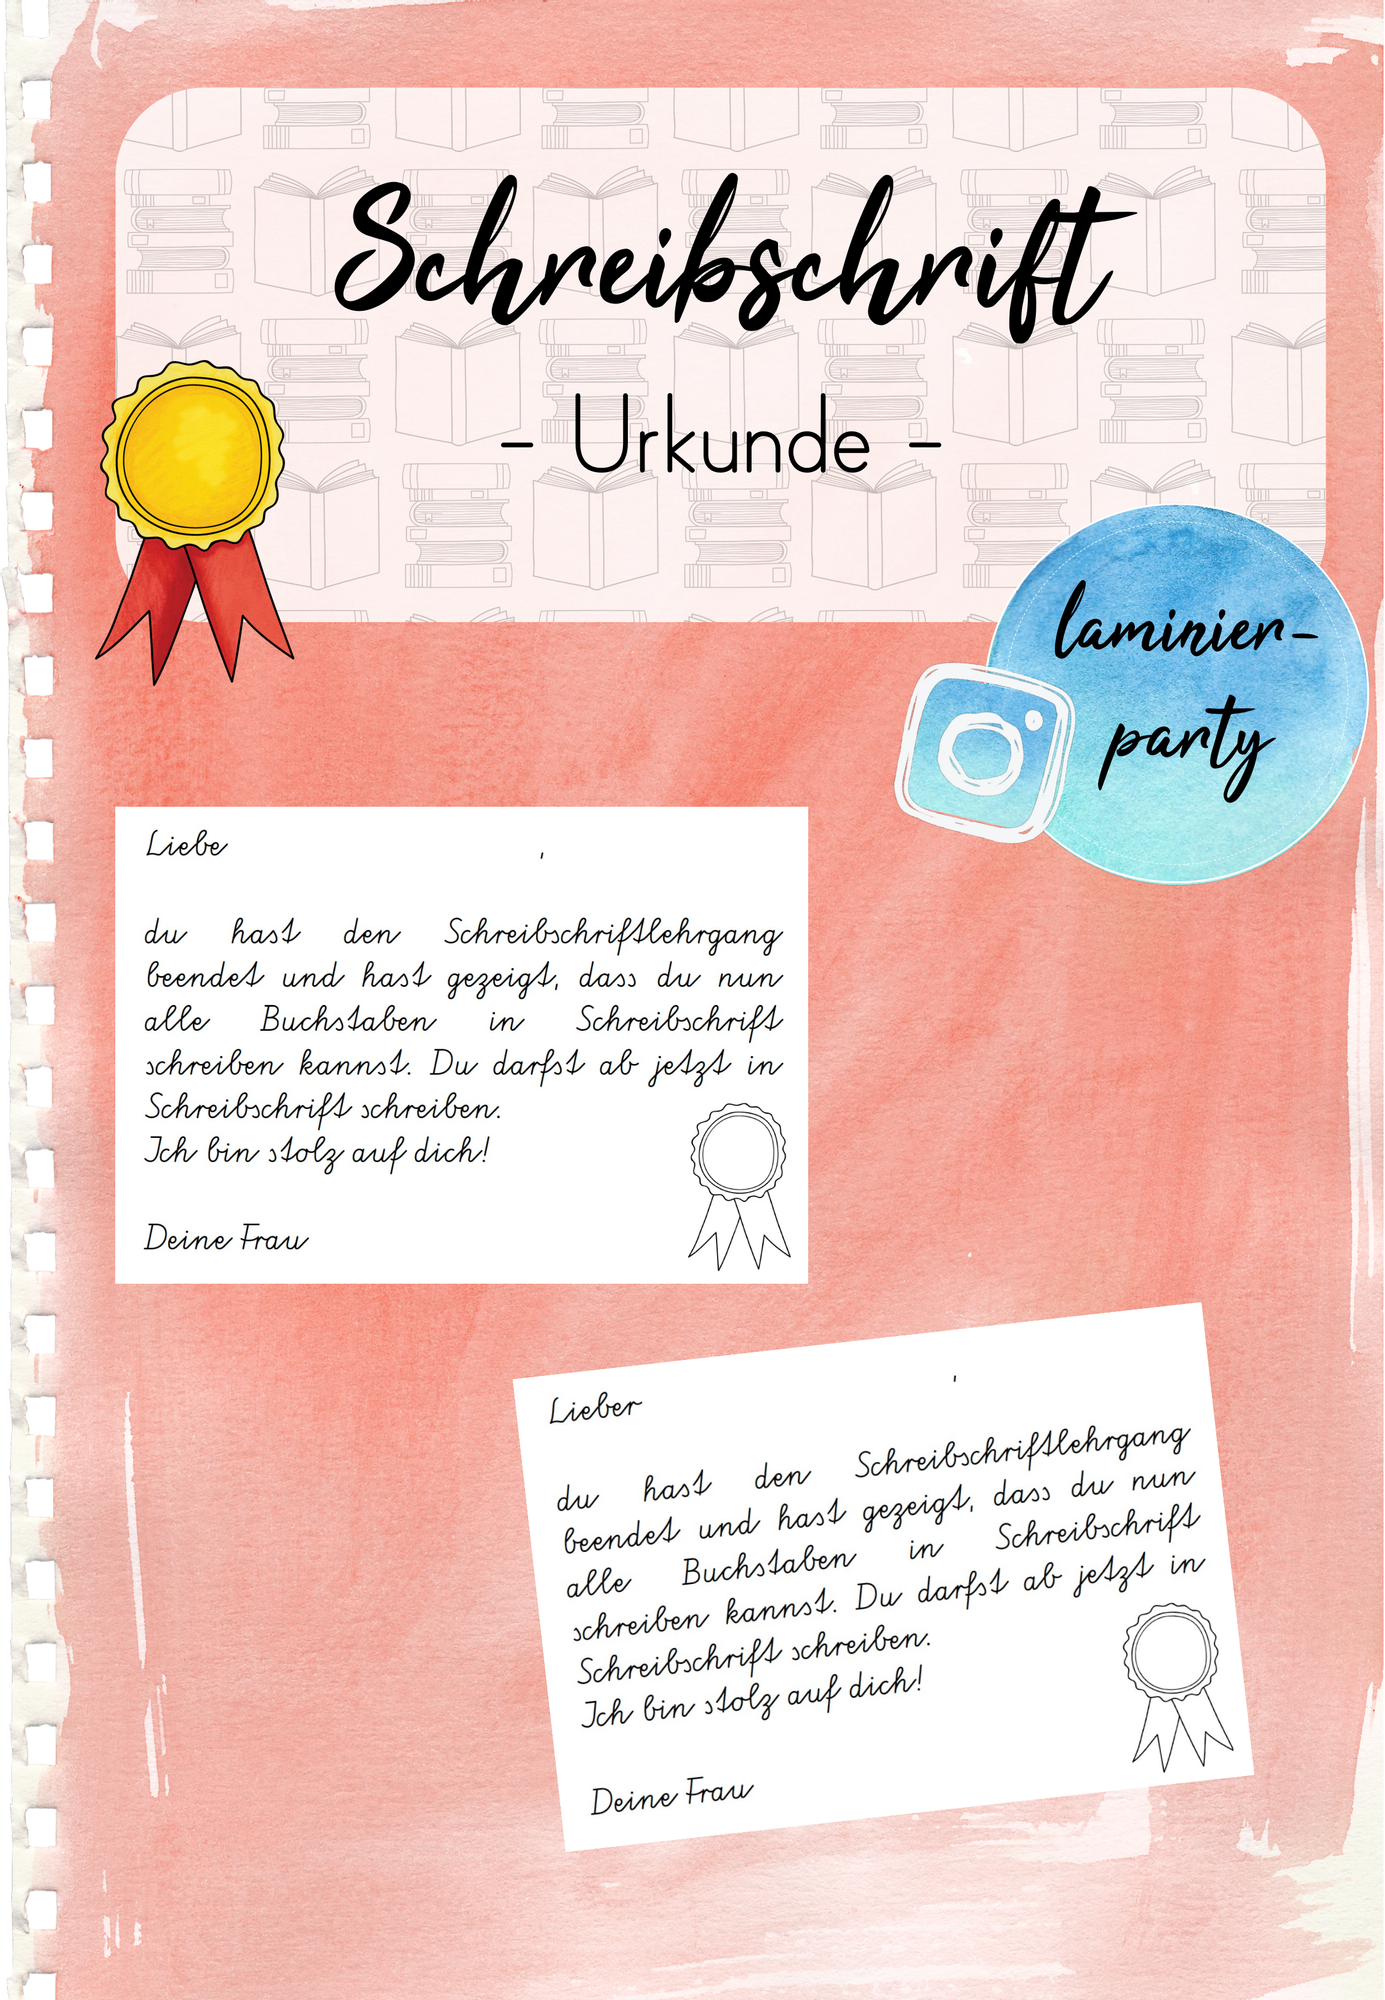 Schreibschrift
- Urkunde -
laminier-
party
Liebe ,
du hast den Schreibschriftlehrgang
beendet und hast gezeigt, dass du nun
alle Buchstaben in Schreibschrift
schreiben kannst. Du darfst ab jetzt in
Schreibschrift schreiben.
Ich bin stolz auf dich!
Deine Frau
Lieber ,
du hast den Schreibschriftlehrgang
beendet und hast gezeigt, dass du nun
alle Buchstaben in Schreibschrift
schreiben kannst. Du darfst ab jetzt in
Schreibschrift schreiben.
Ich bin stolz auf dich!
Deine Frau